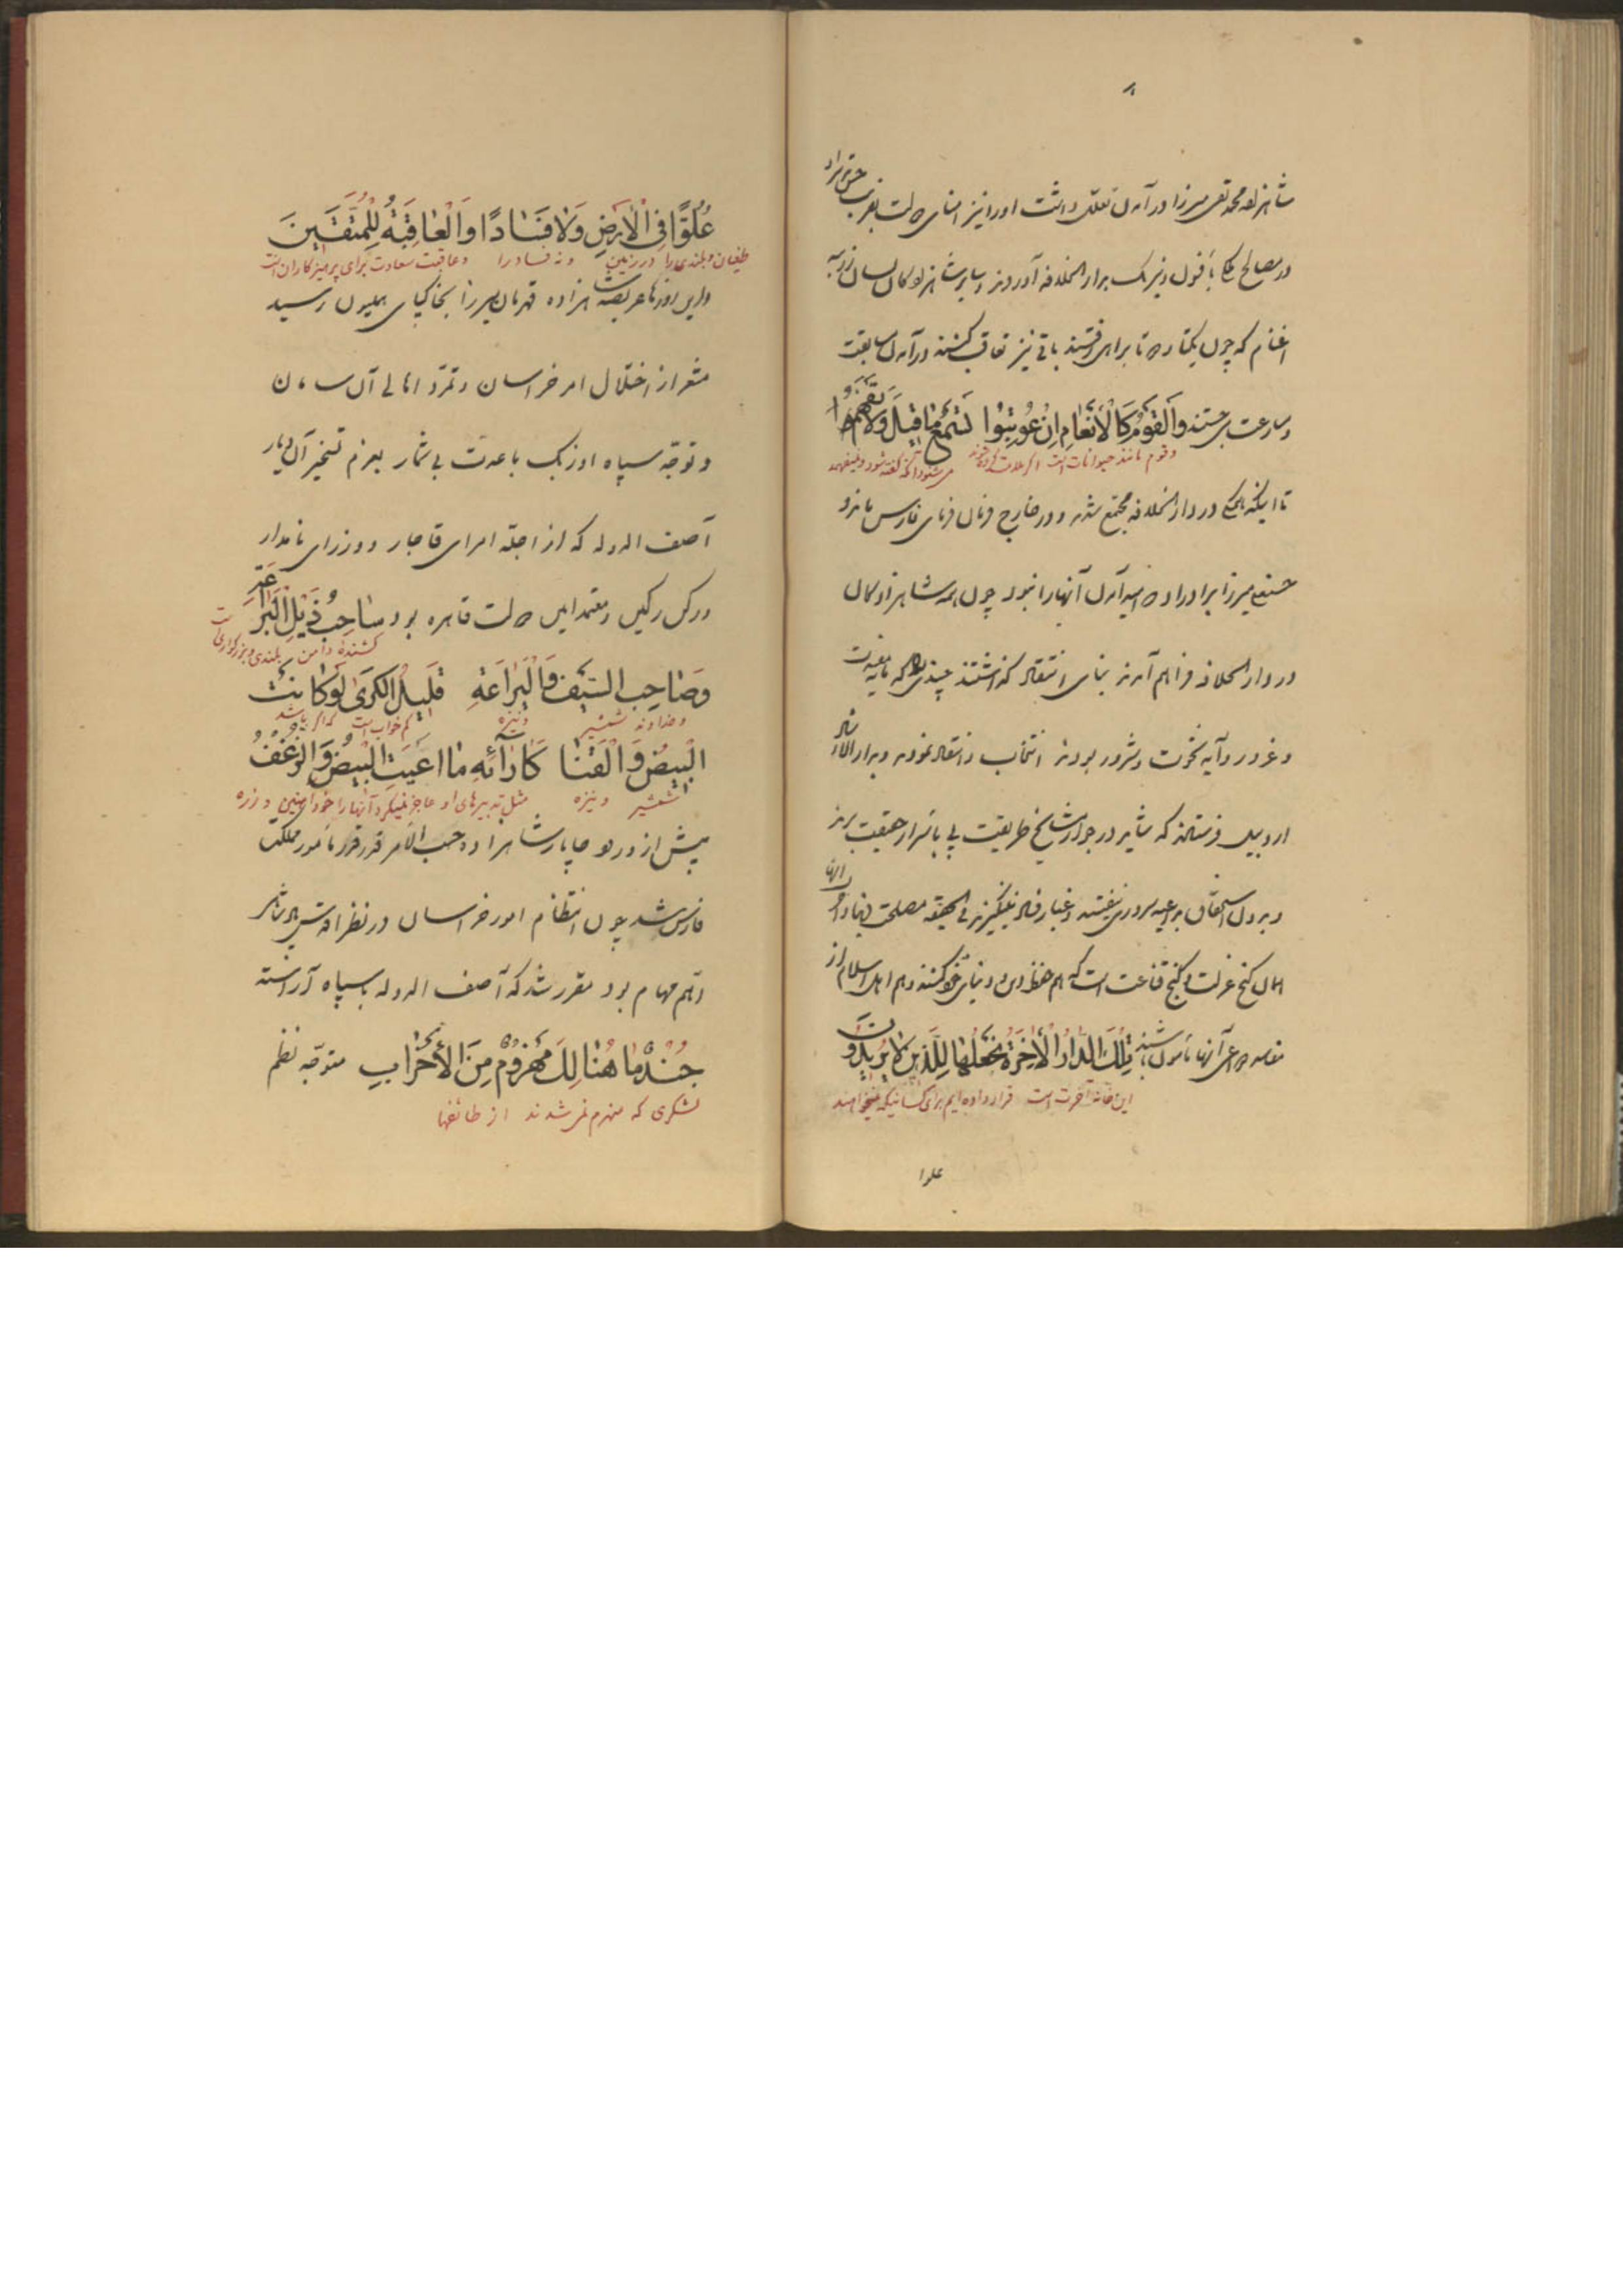 ۸
شاهزاده محمد تقی میرزا در آمدن تعللی داشت او را نیز امنای دولت بضرب
در مصالح ملک بافسون و نیرنک بدار الخلافه آوردند و سایر شاهزادکان بسان
اغنام که چون یکتا ده تا براهی رفتند باقی نیز تعاقب کنند در آمدن سابقت
و مسارعت می جستند وَالقَومُ کَالأَنعامِ اِن عُوتِبُوا تَسمَعُ ما قیلَ وَلا تَفهَمُ
وقوم مانند حیوانات است اکر ملامت کرده شوند می شنود آنچه گفته شود و نمیفهمد
تا اینکه همکی در دار الخلافه مجتمع شدند و در خارج فرمان فرمای فارس ماند و
حسنعلی میرزا برادر او که امید آمدن آنها را نبود چون همه شاهزادکان
در دار الخلافه فراهم آمدند بنای انتقاد گذاشتند چندی را که مایه فتنه
و غرور و آیه نخوت و شرور بودند انتخاب و انتقاد نموده و بدار الارشاد
اردبیل فرستادند که شاید در جوار مشایخ طریقت پی باسرار حقیقت برند
و بدون استحقاق بداعیه سروری نیفتند و غبار فساد نینگیزند فی الحقیقه مصلحت دنیا و آخرت آنها
همان کنج عزلت و گنج قناعت است که هم حفظ دین و دنیای خود کنند و هم اهل اسلام از
مفاسد دواعی آنها مأمون باشند تِلكَ الدّارُ الآخِرَةُ نَجعَلُها لِلَّذينَ لا يُريدُونَ
این خانه آخرت است قرار داده ایم برای کسانیکه نمیخواهند
علوا
عُلُوًّا فِي الأَرضِ وَلا فَسادًا وَالعاقِبَةُ لِلمُتَّقينَ
طغیان و بلندی را در زمین و نه فساد را و عاقبت سعادت برای پرهیزکاران است
در این روزها عریضه شاهزاده قهرمان میرزا بخاکپای همایون رسید
مشعر از اختلال امر خراسان و تمرد اهالی آن سامان
و توجه سپاه اوزبک با عدت بی شمار بعزم تسخیر آن دیار
آصف الدوله که از اجله امرای قاجار و وزرای نامدار
و رکن رکین و معتمد این دولت قاهره بود ساحِبُ ذَیلِ البَراعَةِ
کشنده دامن بلندی و بزرگواری است
وَصاحِبِ السَّیفِ وَالیَراعَةِ قَلیلُ الکَری لَو کانَت
و خداوند شمشیر و نیزه کم خواب است که اگر باشد
البیضُ وَالقَنا کَآرائِهِ ما اعیَتِ البَیضُ وَالزَّغفُ
شمشیر و نیزه مثل تدبیرهای او عاجز نمیکرد آنها را خود آهنین و زره
پیش از ورود چاپار شاهزاده حسب الامر قدر قدر مأمور مملکت
فارس شد چون انتظام امور خراسان در نظر اقدس شاهنشاهی
اهم مهام بود مقرر شد که آصف الدوله با سپاه آراسته
جُندٌ ما هُنالِكَ مَهزُومٌ مِنَ الأَحزابِ متوجه نظم
لشکری که منهزم نمی شدند از طائفها